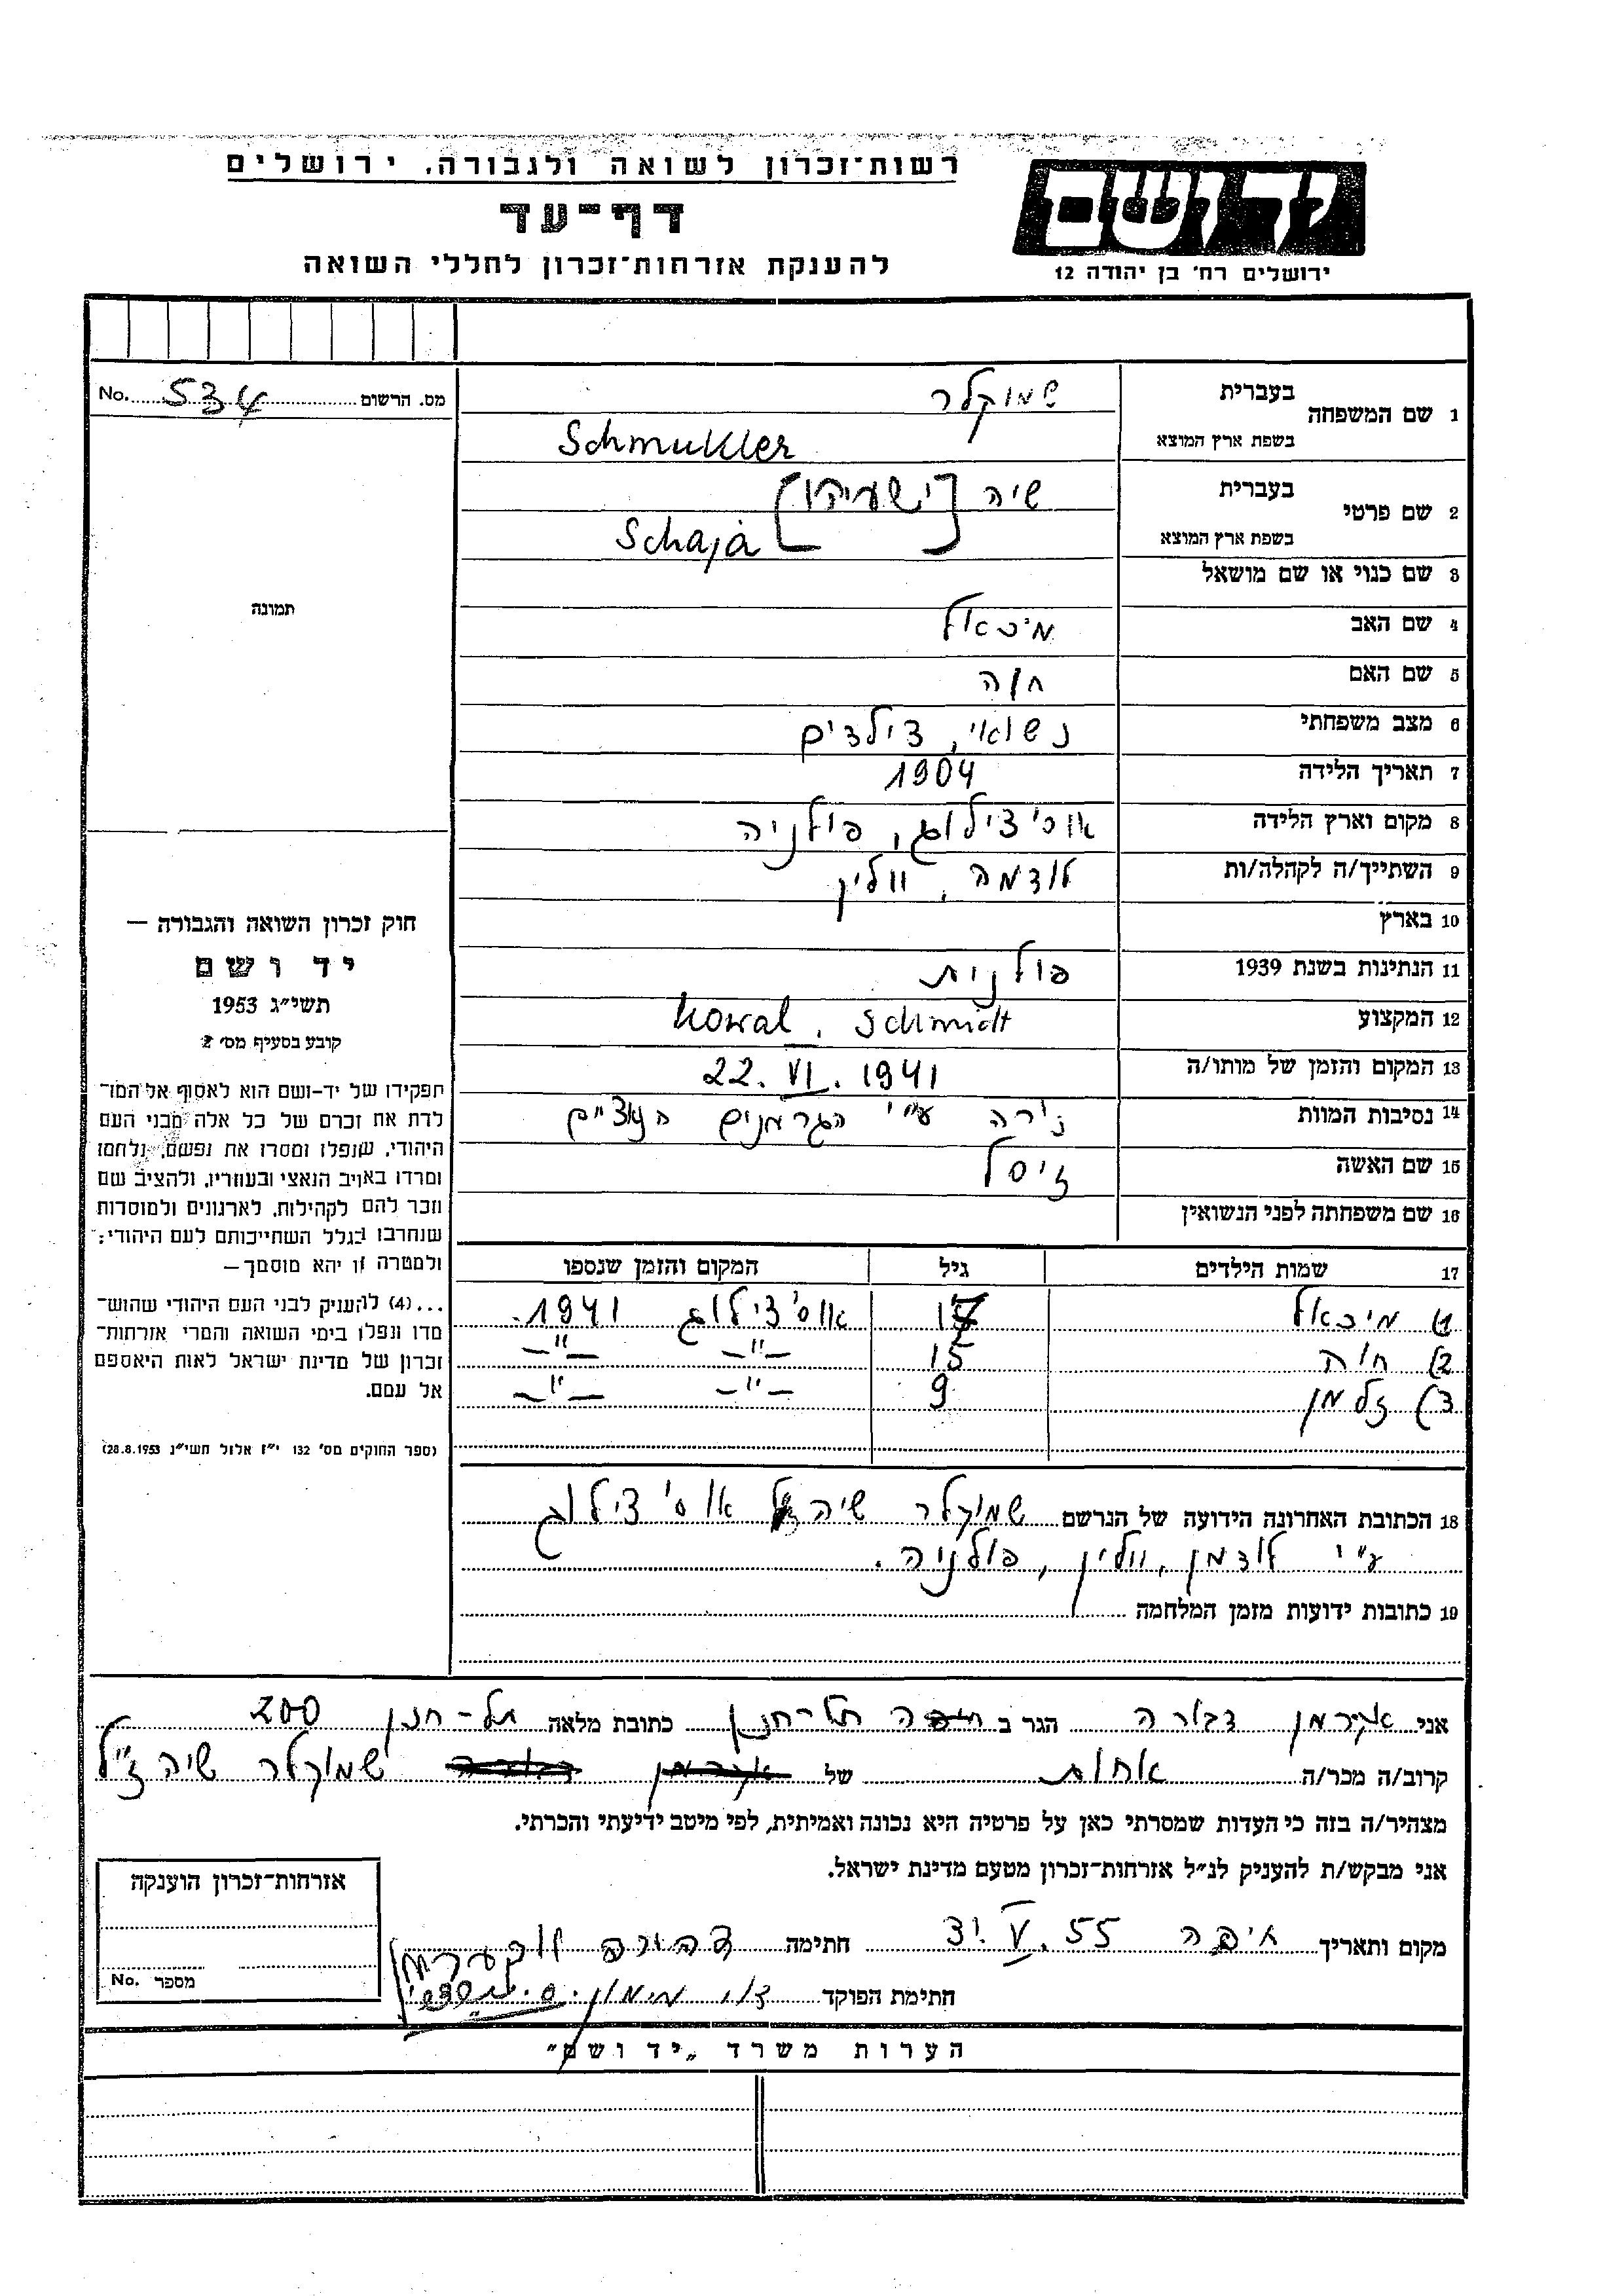 רשות־זכרון לשואה ולגבורה, ירושלים
יד ושם
דף־עד
להענקת אזרחות־זכרון לחללי השואה
ירושלים רח' בן יהודה 12
מס. הרשום 534 No.
1 שם המשפחה בעברית שמוקלר
בשפת ארץ המוצא Schmukler
2 שם פרטי בעברית שיה [ישעיהו]
בשפת ארץ המוצא Schaja
3 שם כנוי או שם מושאל
4 שם האב מיכאל
5 שם האם חוה
6 מצב משפחתי נשואי, 3 ילדים
7 תאריך הלידה 1904
8 מקום וארץ הלידה אוסצילוג, פולניה
9 השתייך/ה לקהלה/ות לודמה, וולין
10 בארץ
11 הנתינות בשנת 1939 פולנית
12 המקצוע Kowal, Schmidt
13 המקום והזמן של מותו/ה 22. VI. 1941
14 נסיבות המוות נירה ע"י הגרמנים הנאצים
15 שם האשה זיסל
16 שם משפחתה לפני הנשואין
17 שמות הילדים גיל המקום והזמן שנספו
1) מיכאל 17 אוס'צילוג 1941.
2) חוה 15 —"— —"—
3) זלמן 9 —"— —"—
18 הכתובת האחרונה הידועה של הנרשם שמוקלר שיה אוס'צילוג
ע"י לודמן, וולין, פולניה.
19 כתובות ידועות מזמן המלחמה
תמונה
חוק זכרון השואה והגבורה —
יד ושם
תשי"ג 1953
קובע בסעיף מס' 2
תפקידו של יד-ושם הוא לאסוף אל המו־
לדת את זכרם של כל אלה מבני העם
היהודי, שנפלו ומסרו את נפשם, נלחמו
ומרדו באויב הנאצי ובעוזריו, ולהציב שם
וזכר להם לקהילות, לארגונים ולמוסדות
שנחרבו בגלל השתייכותם לעם היהודי;
ולמטרה זו יהא מוסמך—
...(4) להעניק לבני העם היהודי שהוש־
מדו ונפלו בימי השואה והמרי אזרחות־
זכרון של מדינת ישראל לאות היאספם
אל עמם.
(ספר החוקים מס' 132 י"ז אלול תשי"ג 28.8.1953)
אני אקרמן דבורה הגר ב חיפה תל-חנן כתובת מלאה תל-חנן 200
קרוב/ה מכר/ה אחות של שמוקלר שיה ז"ל
מצהיר/ה בזה כי העדות שמסרתי כאן על פרטיה היא נכונה ואמיתית, לפי מיטב ידיעתי והכרתי.
אני מבקש/ת להעניק לנ"ל אזרחות־זכרון מטעם מדינת ישראל.
מקום ותאריך חיפה 31. V. 55 חתימה
חתימת הפוקד
אזרחות־זכרון הוענקה
מספר No.
הערות משרד „יד ושם"